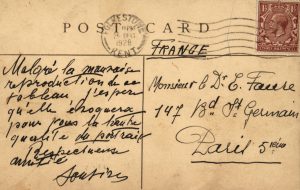 POST CARD
FOLKESTONE
1928
KENT
FRANCE
Malgré la mauvaise
reproduction de ce
tableau j'espère
qu'elle
pour vous la haute
qualité du portrait
Respectueuse
amitié
Soutine
Monsieur le Dr E. Faure
147 Bd St Germain
Paris 5em